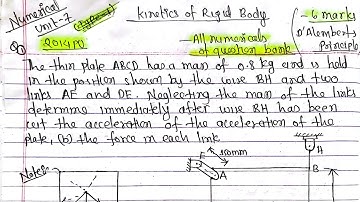 Numerical
Unit-7
Kinetics of Rigid Body
6 marks
D'Alembert's
Principle
Q)
2014 P)
All numericals
of question bank
The thin plate ABCD has a mass of 0.8 kg and is held
in the position shown by the wire BH and two
links AE and DE. Neglecting the mass of the links
determine immediately after wire BH has been
cut the acceleration of the acceleration of the
plate, (b) the force in each link
Note:-
E
150mm
A
B
H